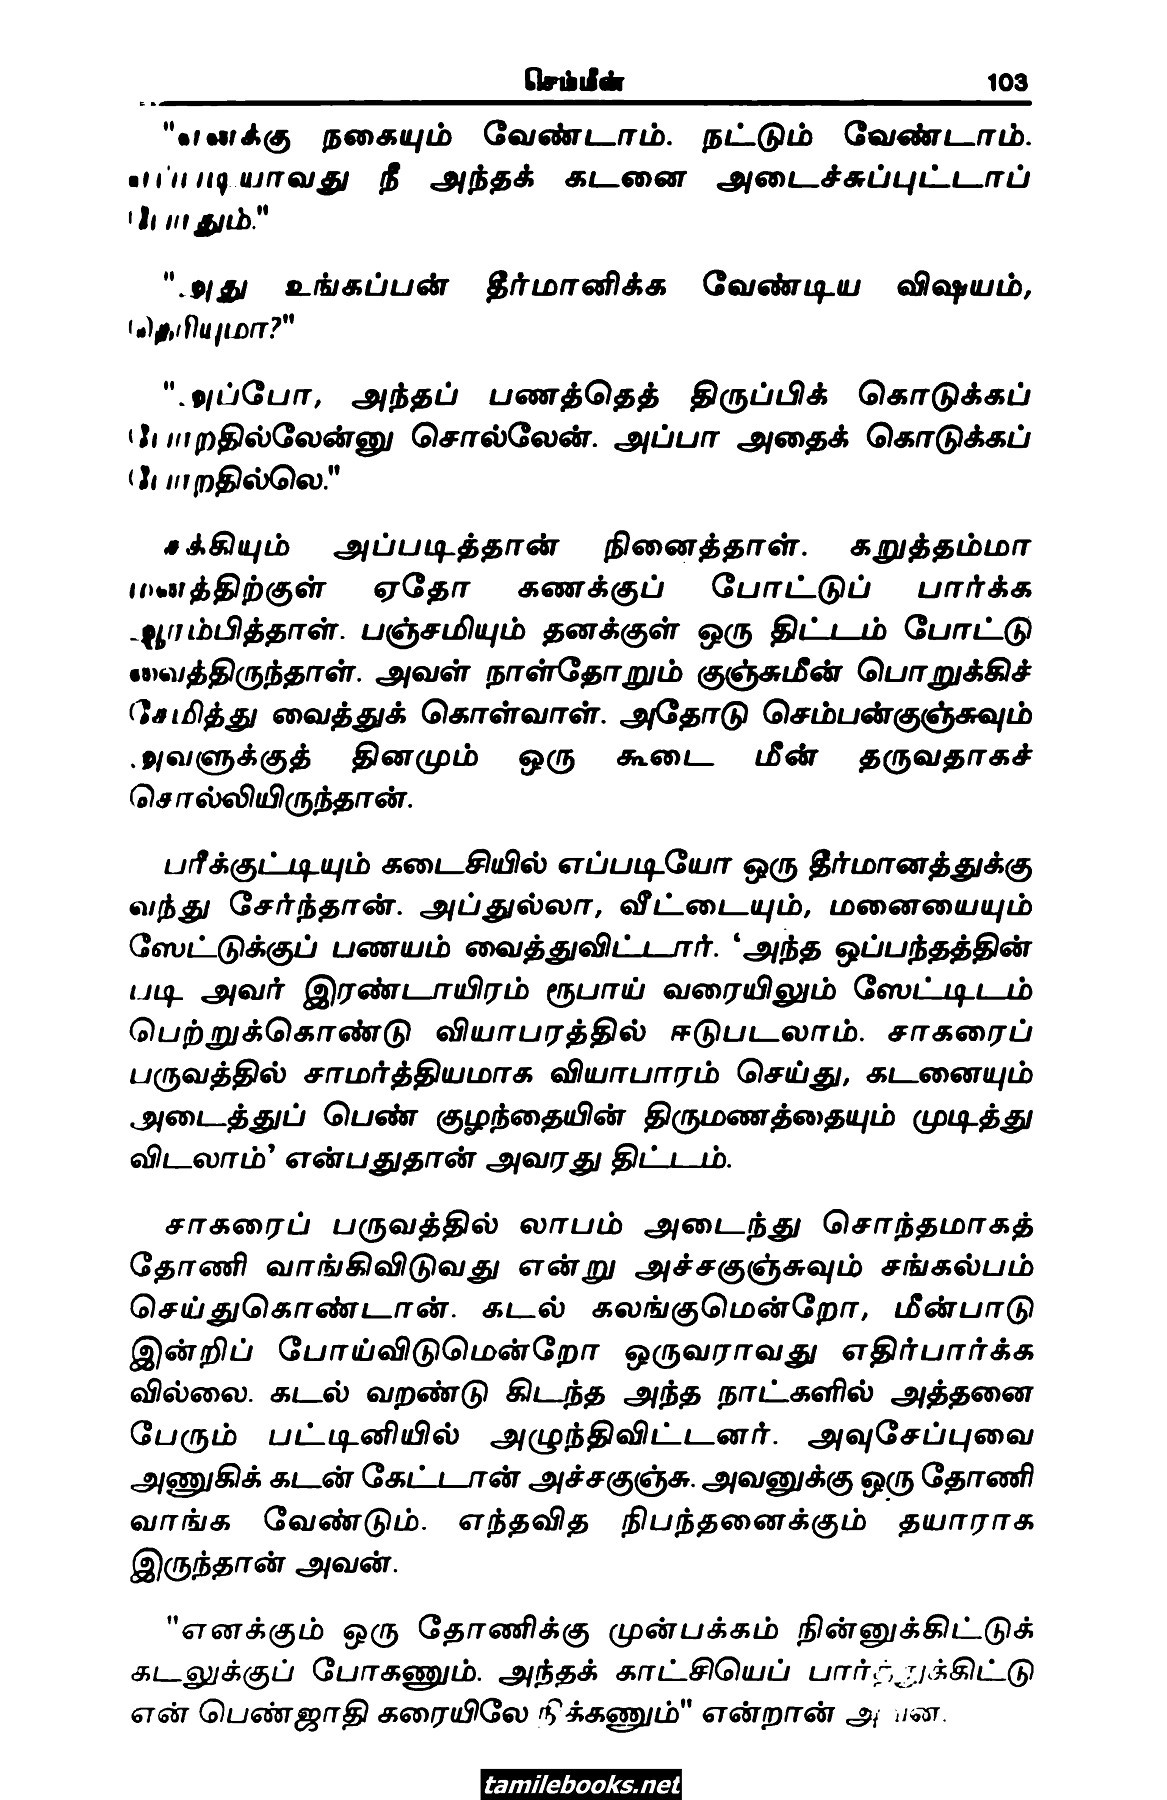 செம்மீன் 103
"எனக்கு நகையும் வேண்டாம். நட்டும் வேண்டாம்.
எப்படியாவது நீ அந்தக் கடனை அடைச்சுப்புட்டாப்
போதும்."
"அது உங்கப்பன் தீர்மானிக்க வேண்டிய விஷயம்,
தெரியுமா?"
"அப்போ, அந்தப் பணத்தெத் திருப்பிக் கொடுக்கப்
போறதில்லேன்னு சொல்லேன். அப்பா அதைக் கொடுக்கப்
போறதில்லெ."
சக்கியும் அப்படித்தான் நினைத்தாள். கறுத்தம்மா
மனத்திற்குள் ஏதோ கணக்குப் போட்டுப் பார்க்க
ஆரம்பித்தாள். பஞ்சமியும் தனக்குள் ஒரு திட்டம் போட்டு
வைத்திருந்தாள். அவள் நாள்தோறும் குஞ்சுமீன் பொறுக்கிச்
சேமித்து வைத்துக் கொள்வாள். அதோடு செம்பன்குஞ்சுவும்
அவளுக்குத் தினமும் ஒரு கூடை மீன் தருவதாகச்
சொல்லியிருந்தான்.
பரீக்குட்டியும் கடைசியில் எப்படியோ ஒரு தீர்மானத்துக்கு
வந்து சேர்ந்தான். அப்துல்லா, வீட்டையும், மனையையும்
ஸேட்டுக்குப் பணயம் வைத்துவிட்டார். ‘அந்த ஒப்பந்தத்தின்
படி அவர் இரண்டாயிரம் ரூபாய் வரையிலும் ஸேட்டிடம்
பெற்றுக்கொண்டு வியாபரத்தில் ஈடுபடலாம். சாகரைப்
பருவத்தில் சாமர்த்தியமாக வியாபாரம் செய்து, கடனையும்
அடைத்துப் பெண் குழந்தையின் திருமணத்தையும் முடித்து
விடலாம்’ என்பதுதான் அவரது திட்டம்.
சாகரைப் பருவத்தில் லாபம் அடைந்து சொந்தமாகத்
தோணி வாங்கிவிடுவது என்று அச்சகுஞ்சுவும் சங்கல்பம்
செய்துகொண்டான். கடல் கலங்குமென்றோ, மீன்பாடு
இன்றிப் போய்விடுமென்றோ ஒருவராவது எதிர்பார்க்க
வில்லை. கடல் வறண்டு கிடந்த அந்த நாட்களில் அத்தனை
பேரும் பட்டினியில் அழுந்திவிட்டனர். அவுசேப்புவை
அணுகிக் கடன் கேட்டான் அச்சகுஞ்சு. அவனுக்கு ஒரு தோணி
வாங்க வேண்டும். எந்தவித நிபந்தனைக்கும் தயாராக
இருந்தான் அவன்.
"எனக்கும் ஒரு தோணிக்கு முன்பக்கம் நின்னுக்கிட்டுக்
கடலுக்குப் போகணும். அந்தக் காட்சியெப் பார்த்துக்கிட்டு
என் பெண்ஜாதி கரையிலே நிக்கணும்" என்றான் அவன்.
tamilebooks.net